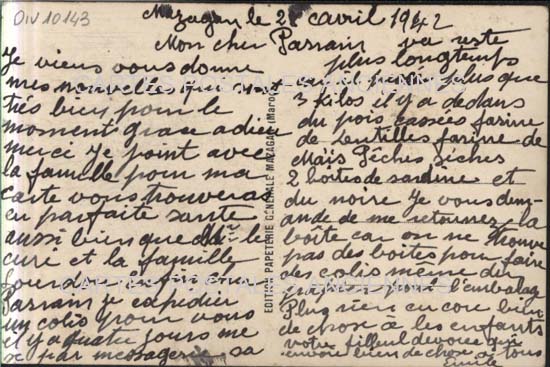 DIV 10143
Mazagan le 2 avril 1942
Mon cher Parrain
Je viens vous donne
mes nouvelle qui sont
très bien pour le
moment grase a dieu
merci Je joint avec
la famille pour ma
carte vous trouveras
en parfaite sante
aussi bien que Mr le
curé et la famille
Parrain je expidier
un colis pour vous
il y a quatre jours me
se par messagerie sa
va reste
plus longtemps
car il plus que
3 kilos il y a dedans
du pois cassées farine
de lentilles farine de
Maïs Pêches sèches
2 boites de sardine et
du noire Je vous dem-
ande de me retournez la
boîte car on ne trouve
pas des boites pour faire
des colis meme du
papier pour l'embalage
Plus rien encore bien
de chose a les enfants
votre filleul devoué qui
envoie bien de chose a tous
Emile
EDITION PAPETERIE GÉNÉRALE MAZAGAN (Maroc)
CARTES POSTALES ANCIENNES
CARTES POSTALES ANCIENNES